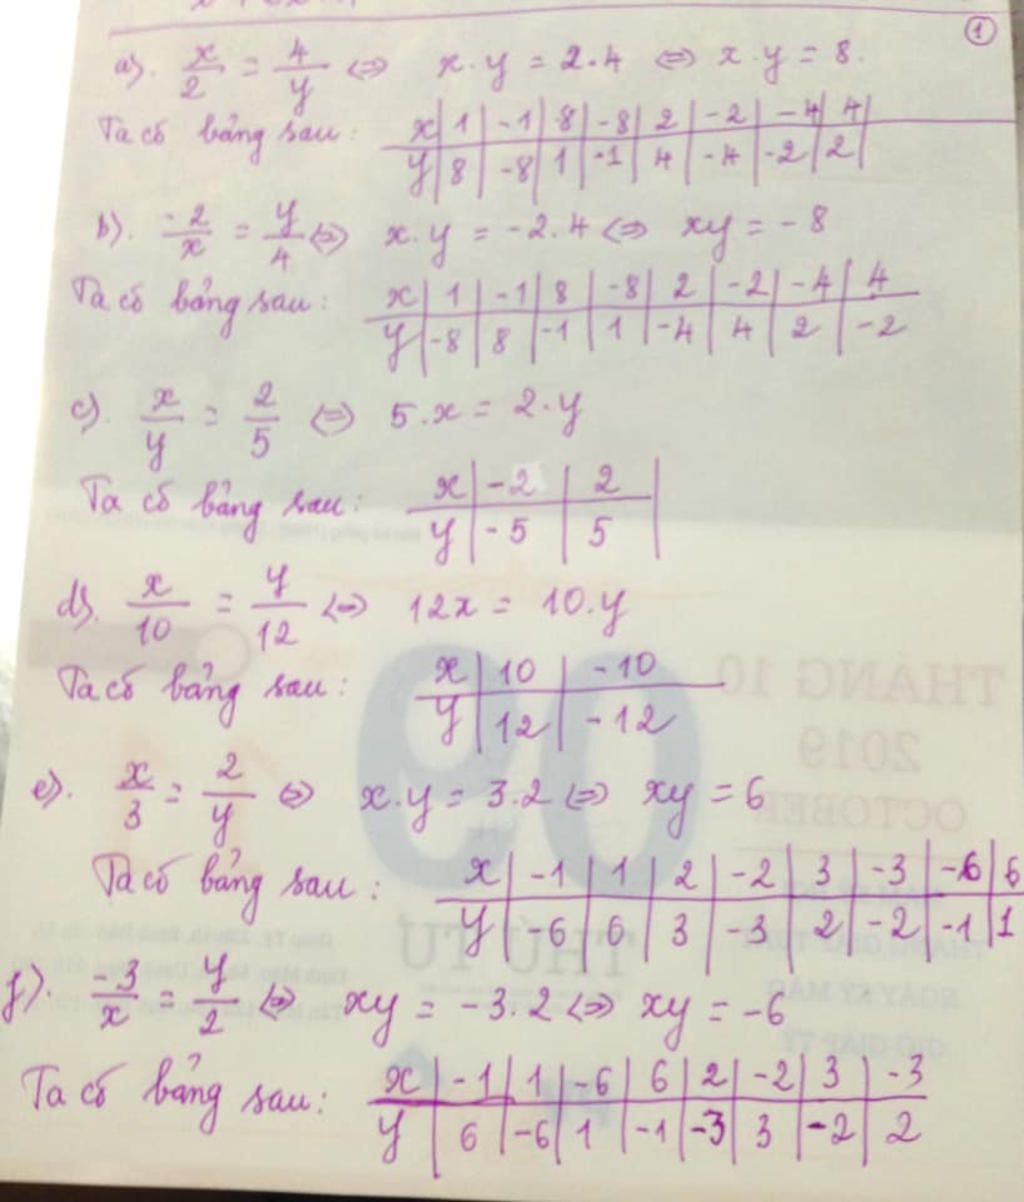 ①
a). x/2 = 4/y ⇔ x.y = 2.4 ⇔ x.y = 8.
Ta có bảng sau: x | 1 | -1 | 8 | -8 | 2 | -2 | -4 | 4
y | 8 | -8 | 1 | -1 | 4 | -4 | -2 | 2
b). -2/x = y/4 ⇔ x.y = -2.4 ⇔ xy = -8
Ta có bảng sau: x | 1 | -1 | 8 | -8 | 2 | -2 | -4 | 4
y | -8 | 8 | -1 | 1 | -4 | 4 | 2 | -2
c). x/y = 2/5 ⇔ 5.x = 2.y
Ta có bảng sau: x | -2 | 2
y | -5 | 5
d). x/10 = y/12 ⇔ 12x = 10.y
Ta có bảng sau: x | 10 | -10
y | 12 | -12
e). x/3 = 2/y ⇔ x.y = 3.2 ⇔ xy = 6
Ta có bảng sau: x | -1 | 1 | 2 | -2 | 3 | -3 | -6 | 6
y | -6 | 6 | 3 | -3 | 2 | -2 | -1 | 1
f). -3/x = y/2 ⇔ xy = -3.2 ⇔ xy = -6
Ta có bảng sau: x | -1 | 1 | -6 | 6 | 2 | -2 | 3 | -3
y | 6 | -6 | 1 | -1 | -3 | 3 | -2 | 2
09
THÁNG 10
2019
OCTOBER
THỨ TƯ